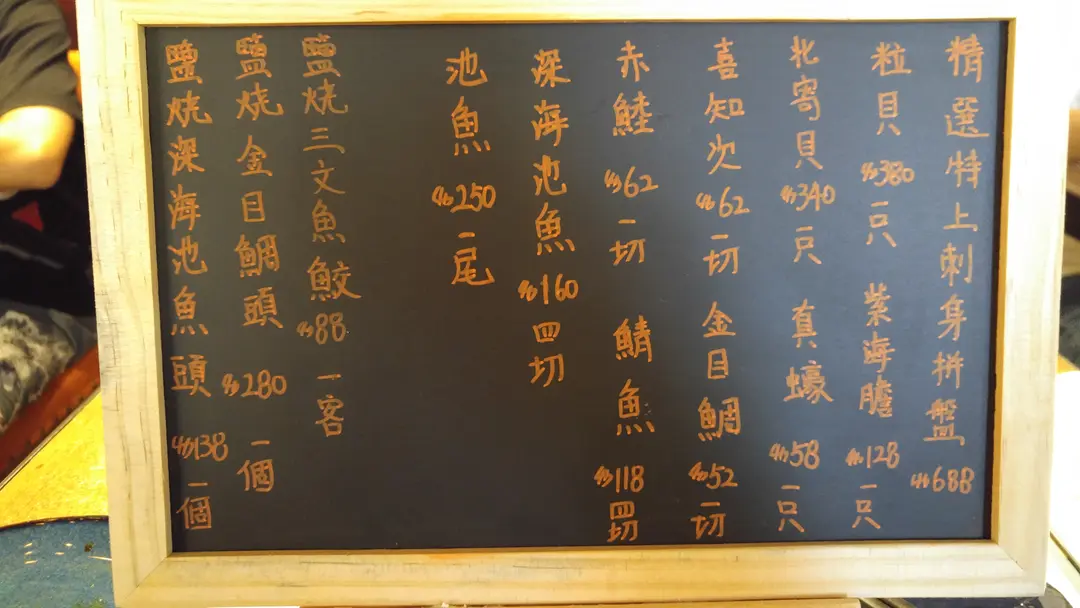 精選特上刺身拼盤 $688
粒貝 $380 一只 紫海膽 $128 一只
北寄貝 $340 一只 真蠔 $58 一只
喜知次 $62 一切 金目鯛 $52 一切
赤鯥 $62 一切 鯖魚 $118 四切
深海池魚 $160 四切
池魚 $250 一尾
鹽燒三文魚鮫 $88 一客
鹽燒金目鯛頭 $280 一個
鹽燒深海池魚頭 $138 一個